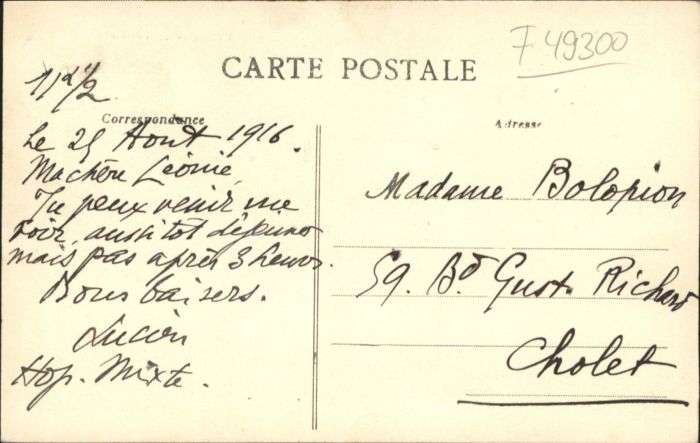 F 49300
CARTE POSTALE
11h 1/2
Correspondance
Le 25 Août 1916.
Ma chère Léonie,
Tu peux venir me
voir, aussitôt déjeuner
mais pas après 3 heures.
Bons baisers.
Lucien
Hop. Mixte.
Adresse
Madame Bolopion
59. Bd Gust. Richard
Cholet